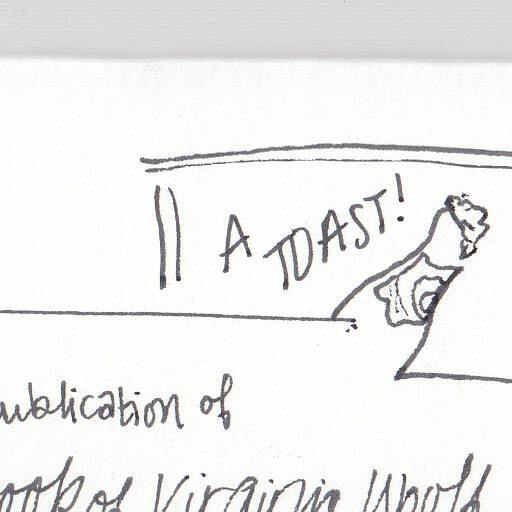 A TOAST!
publication of
book of Virginia Woolf